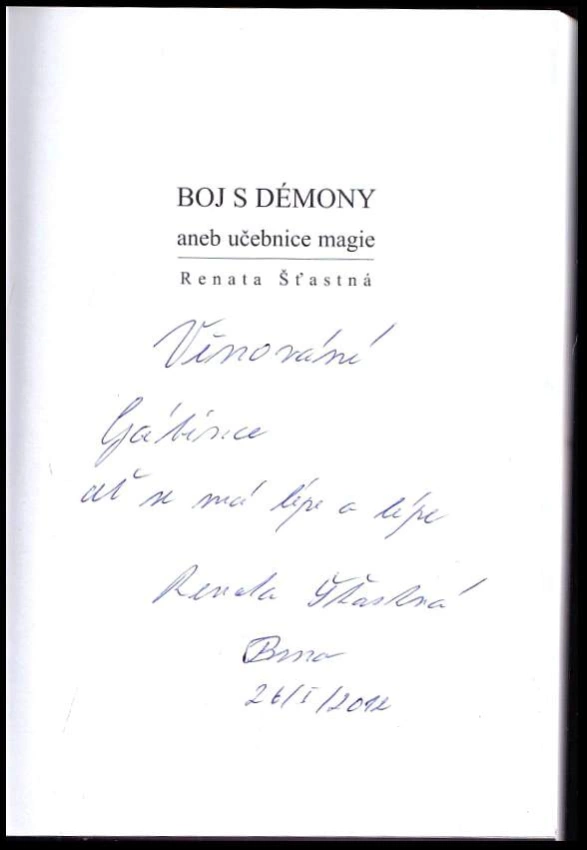 BOJ S DÉMONY
aneb učebnice magie
Renata Šťastná
Věnování
Gábince
ať se má lépe a lépe
Renata Šťastná
Brno
26/I/2012